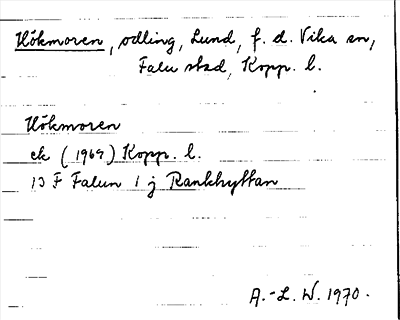 Hökmoren, odling, Lund, f. d. Vika sn,
Falu stad, Kopp. l.
Hökmoren
ek (1969) Kopp. l.
13 F Falun 1 j Rankhyttan
A.-L. W. 1970.